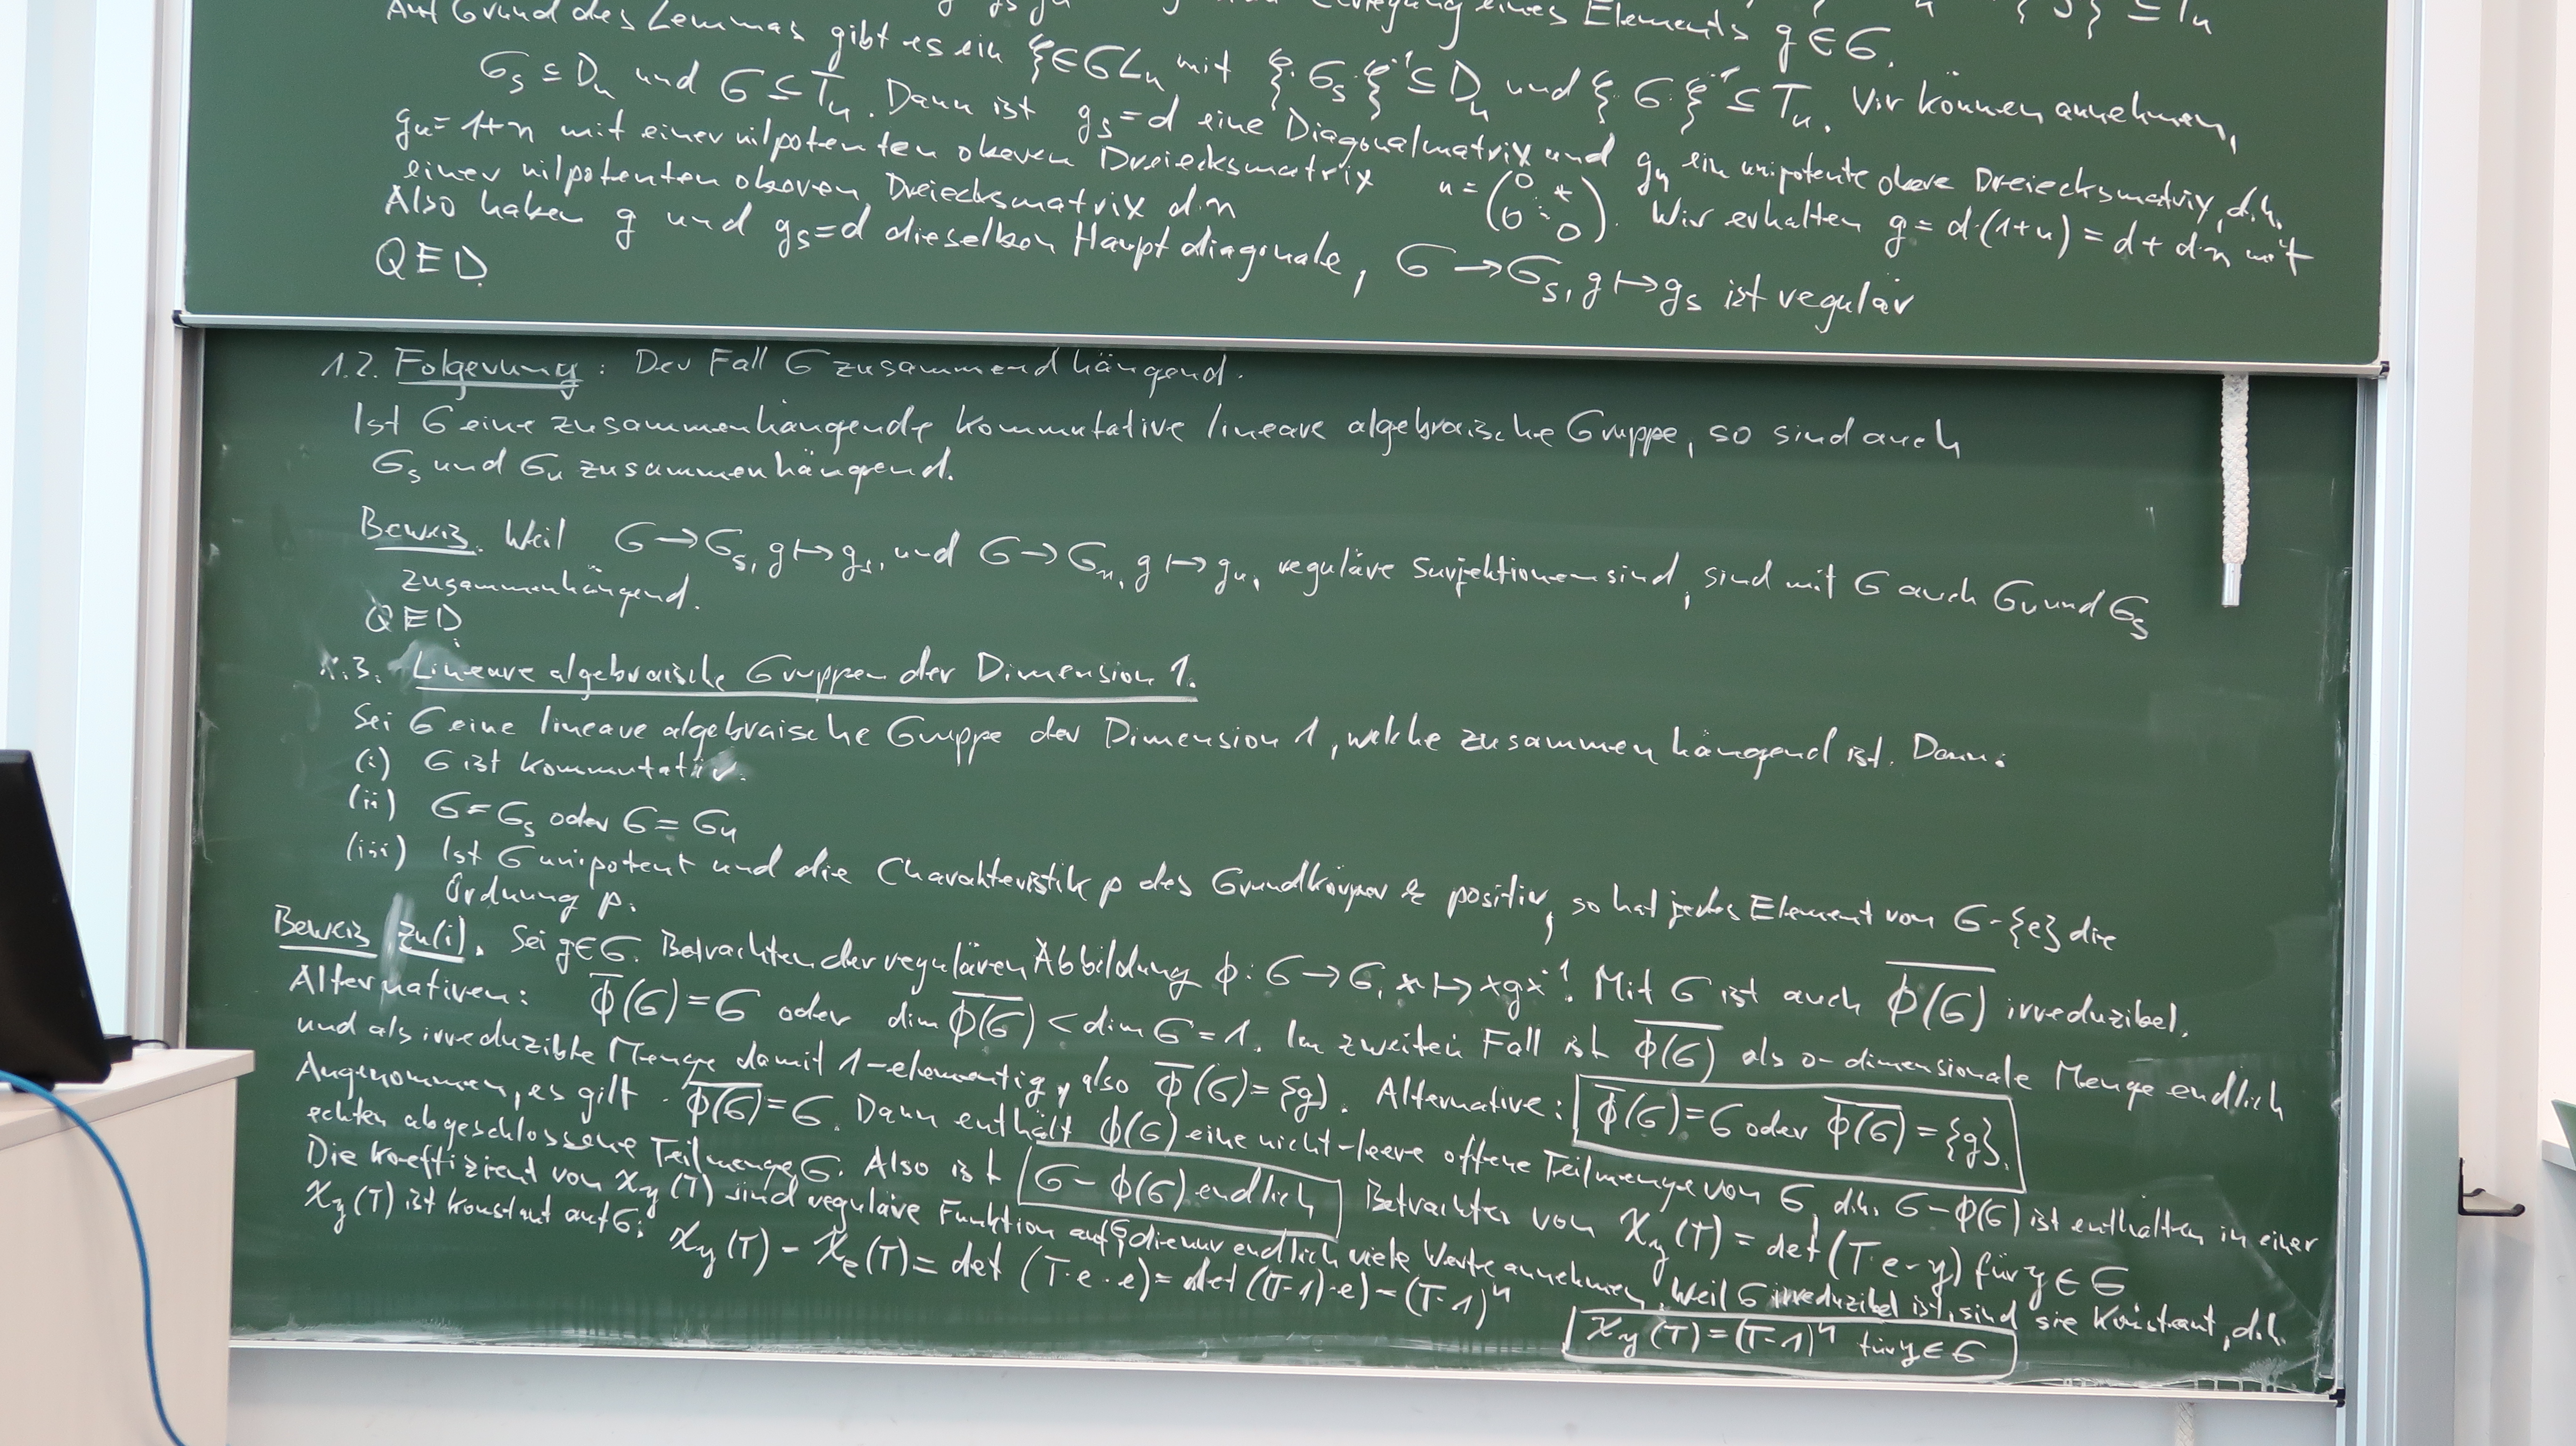 Auf Grund des Lemmas gibt es ein ξ∈GLn mit ξ·Gs·ξ⁻¹ ⊆ Dn und ξ·G·ξ⁻¹ ⊆ Tn. Wir können annehmen,
Gs ⊆ Dn und G ⊆ Tn. Dann ist gs=d eine Diagonalmatrix und gu ein unipotente obere Dreiecksmatrix, d.h.
gu=1+n mit einer nilpotenten oberen Dreiecksmatrix n = (0 * 0 0). Wir erhalten g = d·(1+n) = d + d·n mit
einer nilpotenten oberen Dreiecksmatrix d·n
Also haben g und gs=d dieselben Hauptdiagonale, G → Gs, g ↦ gs ist regulär
QED.
1.2. Folgerung: Der Fall G zusammendhängend.
Ist G eine zusammenhängende kommutative lineare algebraische Gruppe, so sind auch
Gs und Gu zusammenhängend.
Beweis. Weil G → Gs, g ↦ gs, und G → Gu, g ↦ gu, reguläre Surjektionen sind, sind mit G auch Gu und Gs
zusammenhängend.
QED
1.3. Lineare algebraische Gruppen der Dimension 1.
Sei G eine lineare algebraische Gruppe der Dimension 1, welche zusammenhängend ist. Dann:
(i) G ist kommutativ.
(ii) G = Gs oder G = Gu
(iii) Ist G unipotent und die Charakteristik p des Grundkörper k positiv, so hat jedes Element von G-{e} die
Ordnung p.
Beweis zu(i). Sei g∈G. Betrachten der regulären Abbildung ϕ: G → G, x ↦ xgx⁻¹. Mit G ist auch \overline{ϕ(G)} irreduzibel.
Alternativen: \overline{ϕ}(G) = G oder dim \overline{ϕ(G)} < dim G = 1. Im zweiten Fall ist \overline{ϕ(G)} als 0-dimensionale Menge endlich
und als irreduzible Menge damit 1-elementig, also \overline{ϕ}(G) = {g}. Alternative: \overline{ϕ}(G) = G oder \overline{ϕ(G)} = {g}.
Angenommen, es gilt \overline{ϕ(G)} = G. Dann enthält ϕ(G) eine nicht-leere offene Teilmenge von G, d.h. G-ϕ(G) ist enthalten in einer
echten abgeschlossene Teilmenge G. Also ist G - ϕ(G) endlich Betrachten von χy(T) = det(T·e-y) für y∈G
Die Koeffizient von χy(T) sind reguläre Funktion auf G, die nur endlich viele Werte annehmen. Weil G irreduzibel ist, sind sie konstant, d.h.
χy(T) ist konstant auf G: χy(T) - χe(T) = det (T·e - e) = det((T-1)·e) = (T-1)ⁿ χy(T) = (T-1)ⁿ für y∈G